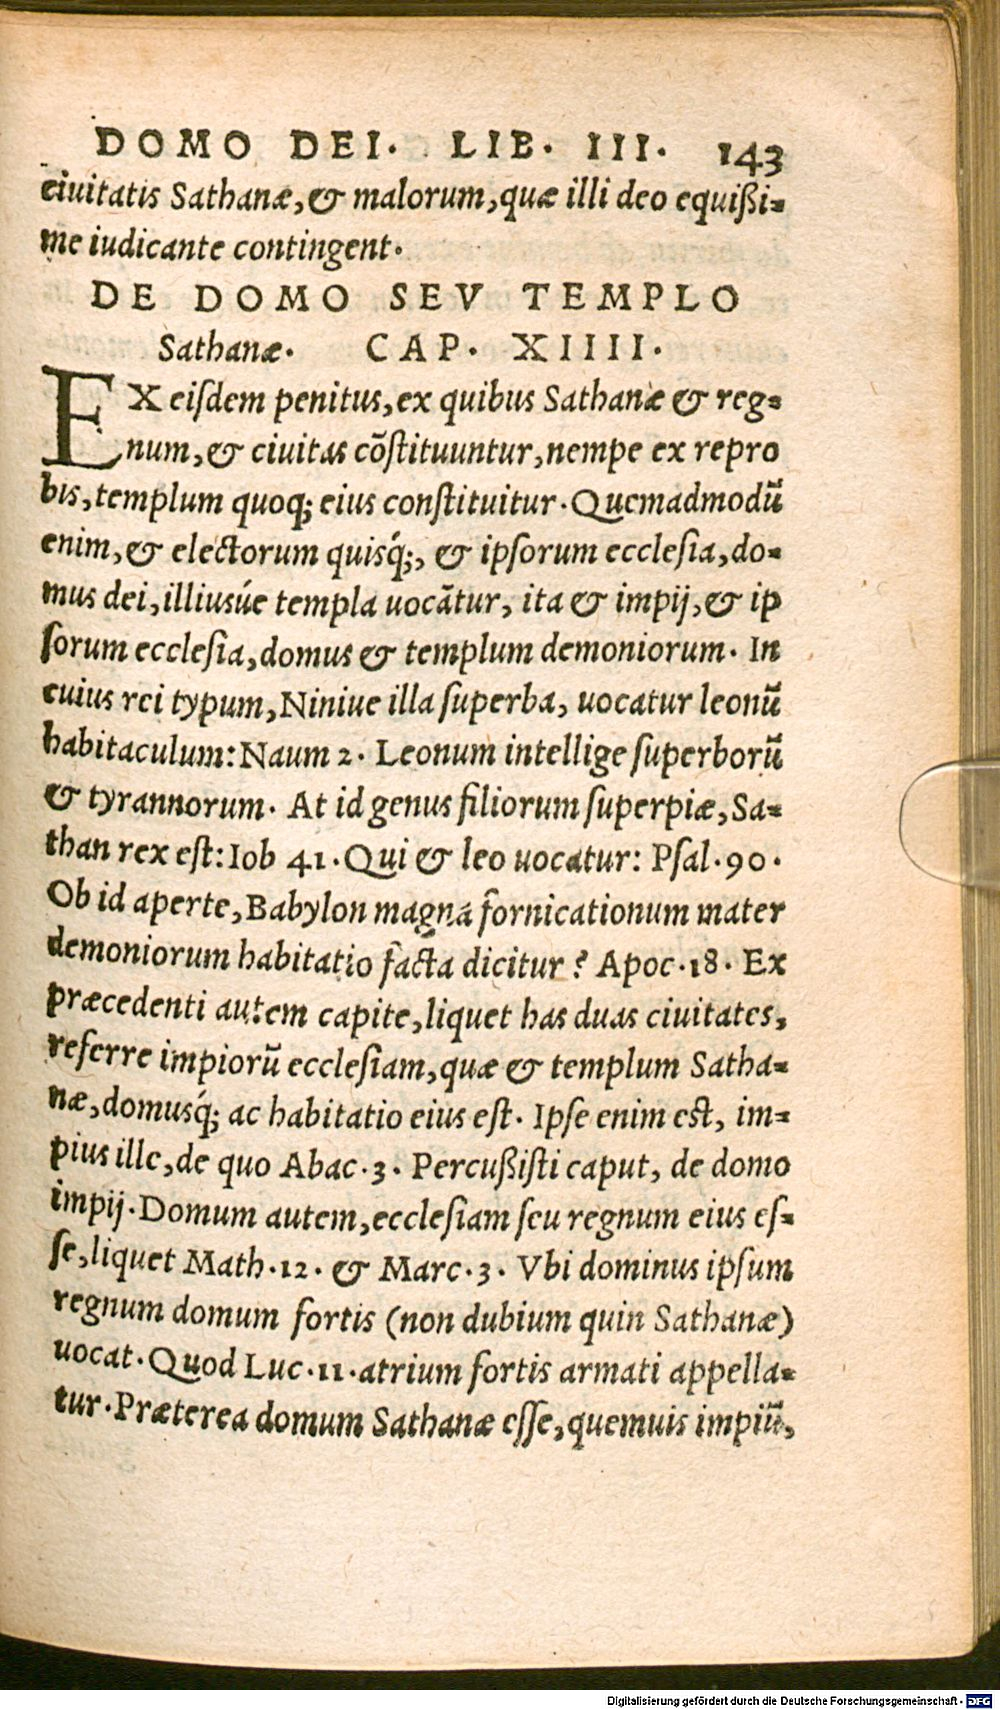 DOMO DEI. LIB. III. 143
ciuitatis Sathanæ, & malorum, quæ illi deo equißi-
me iudicante contingent.
DE DOMO SEV TEMPLO
Sathanæ. CAP. XIIII.
EX eiſdem penitus, ex quibus Sathanæ & reg-
num, & ciuitas cõſtituuntur, nempe ex repro
bis, templum quoq; eius conſtituitur. Quemadmodũ
enim, & electorum quisq́;, & ipſorum eccleſia, do-
mus dei, illiusúe templa uocãtur, ita & impij, & ip
ſorum eccleſia, domus & templum demoniorum. In
cuius rei typum, Niniue illa ſuperba, uocatur leonũ
habitaculum: Naum 2. Leonum intellige ſuperborũ
& tyrannorum. At id genus filiorum ſuperpiæ, Sa-
than rex eſt: Iob 41. Qui & leo uocatur: Pſal. 90.
Ob id aperte, Babylon magna fornicationum mater
demoniorum habitatio facta dicitur? Apoc. 18. Ex
præcedenti autem capite, liquet has duas ciuitates,
referre impiorũ eccleſiam, quæ & templum Satha-
næ, domusq́; ac habitatio eius eſt. Ipſe enim eſt, im-
pius ille, de quo Abac. 3. Percußiſti caput, de domo
impij. Domum autem, eccleſiam ſeu regnum eius eſ-
ſe, liquet Math. 12. & Marc. 3. Vbi dominus ipſum
regnum domum fortis (non dubium quin Sathanæ)
uocat. Quod Luc. 11. atrium fortis armati appella-
tur. Præterea domum Sathanæ eſſe, quemuis impiũ,
Digitalisierung gefördert durch die Deutsche Forschungsgemeinschaft - DFG